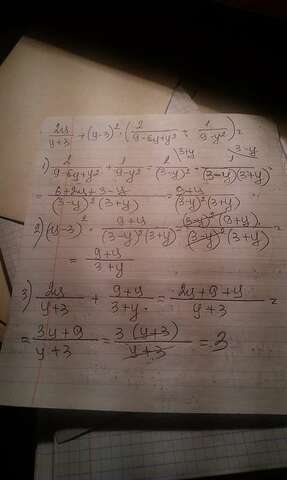 2y/(y+3) + (y-3)² · (2/(9-6y+y²) + 1/(9-y²)) =
1) 2/(9-6y+y²) + 1/(9-y²) = 2/(3-y)² \3+y + 1/((3-y)(3+y)) \3-y =
= (6+2y+3-y)/((3-y)²(3+y)) = (9+y)/((3-y)²(3+y))
2) (y-3)² · (9+y)/((3-y)²(3+y)) =
= (9+y)/(3+y)
3) 2y/(y+3) + (9+y)/(3+y) = (2y+9+y)/(y+3) =
= (3y+9)/(y+3) = 3(y+3)/(y+3) = 3